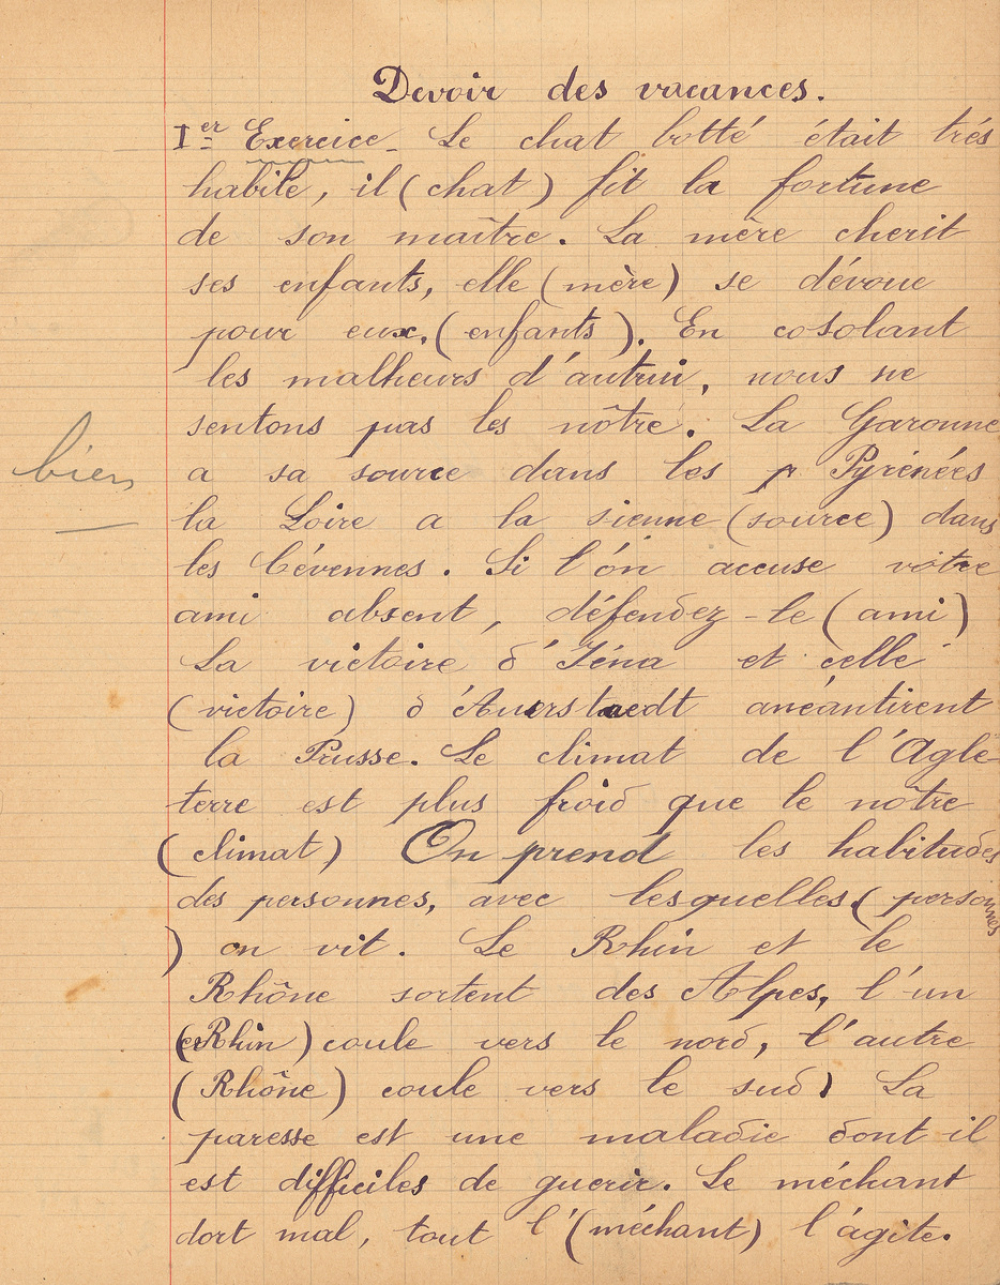 Devoir des vacances.
Ier Exercice_ Le chat botté était trés
habile, il (chat) fit la fortune
de son maître. La mère cherit
ses enfants, elle (mère) se dévoue
pour eux, (enfants). En cosolant
les malheurs d'autrui, nous ne
sentons pas les nôtre. La Garonne
bien
a sa source dans les p Pyrénées
la Loire a la sienne (source) dans
les Cévennes. Si l'on accuse votre
ami absent, défendez-le (ami)
La victoire d'Iéna et celle
(victoire) d'Auerstaedt anéantirent
la Prusse. Le climat de l'Agle-
terre est plus froid que le nôtre
(climat) On prend les habitudes
des personnes, avec lesquelles (personnes
) on vit. Le Rhin et le
Rhône sortent des Alpes, l'un
(Rhin) coule vers le nord, l'autre
(Rhône) coule vers le sud. La
paresse est une maladie dont il
est difficiles de guerir. Le méchant
dort mal, tout l'(méchant) l'agite.